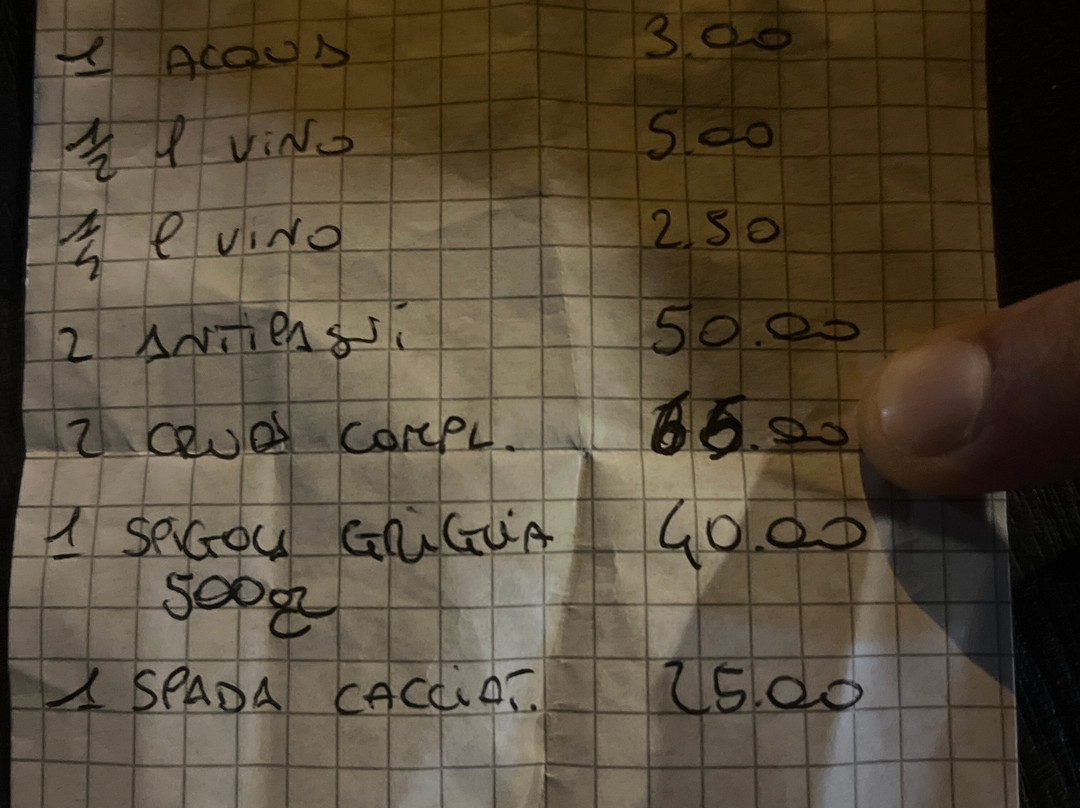 1 ACQUA 3.00
1/2 l VINO 5.00
1/4 l VINO 2.50
2 ANTIPASTI 50.00
2 CRUDI COMPL. .00
1 SPIGOLA GRIGLIA 40.00
500gr
1 SPADA CACCIAT. 25.00